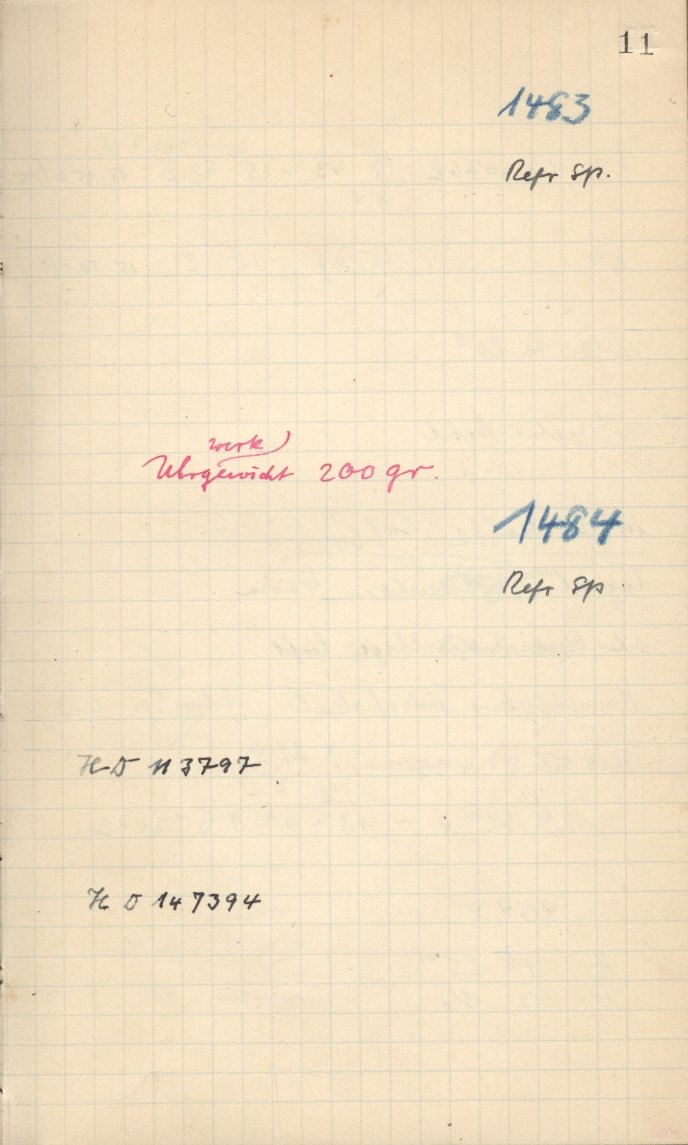 11
1483
Refr Sp.
werk
Uhrgewicht 200 gr.
1484
Refr Sp.
HD 113797
HD 147394